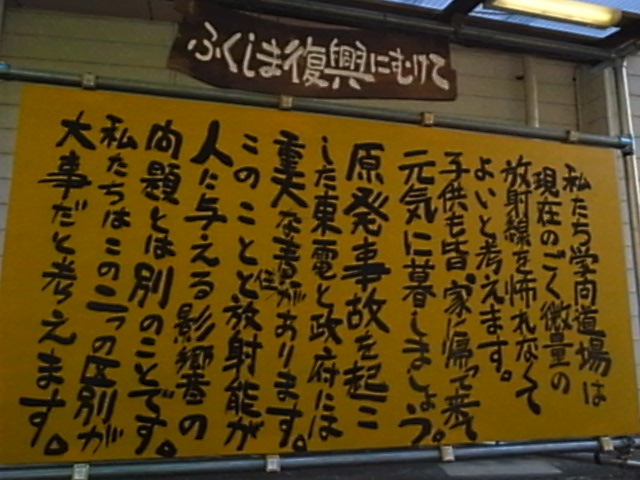 ふくしま復興にむけて
私たち学問道場は
現在のごく微量の
放射線を怖れなくて
よいと考えます。
子供も皆、家に帰って来て
元気に暮しましょう。
原発事故を起こ
した東電と政府には
重大な責任があります。
このことと放射能が
人に与える影響の
問題とは別のことです。
私たちはこの二つの区別が
大事だと考えます。